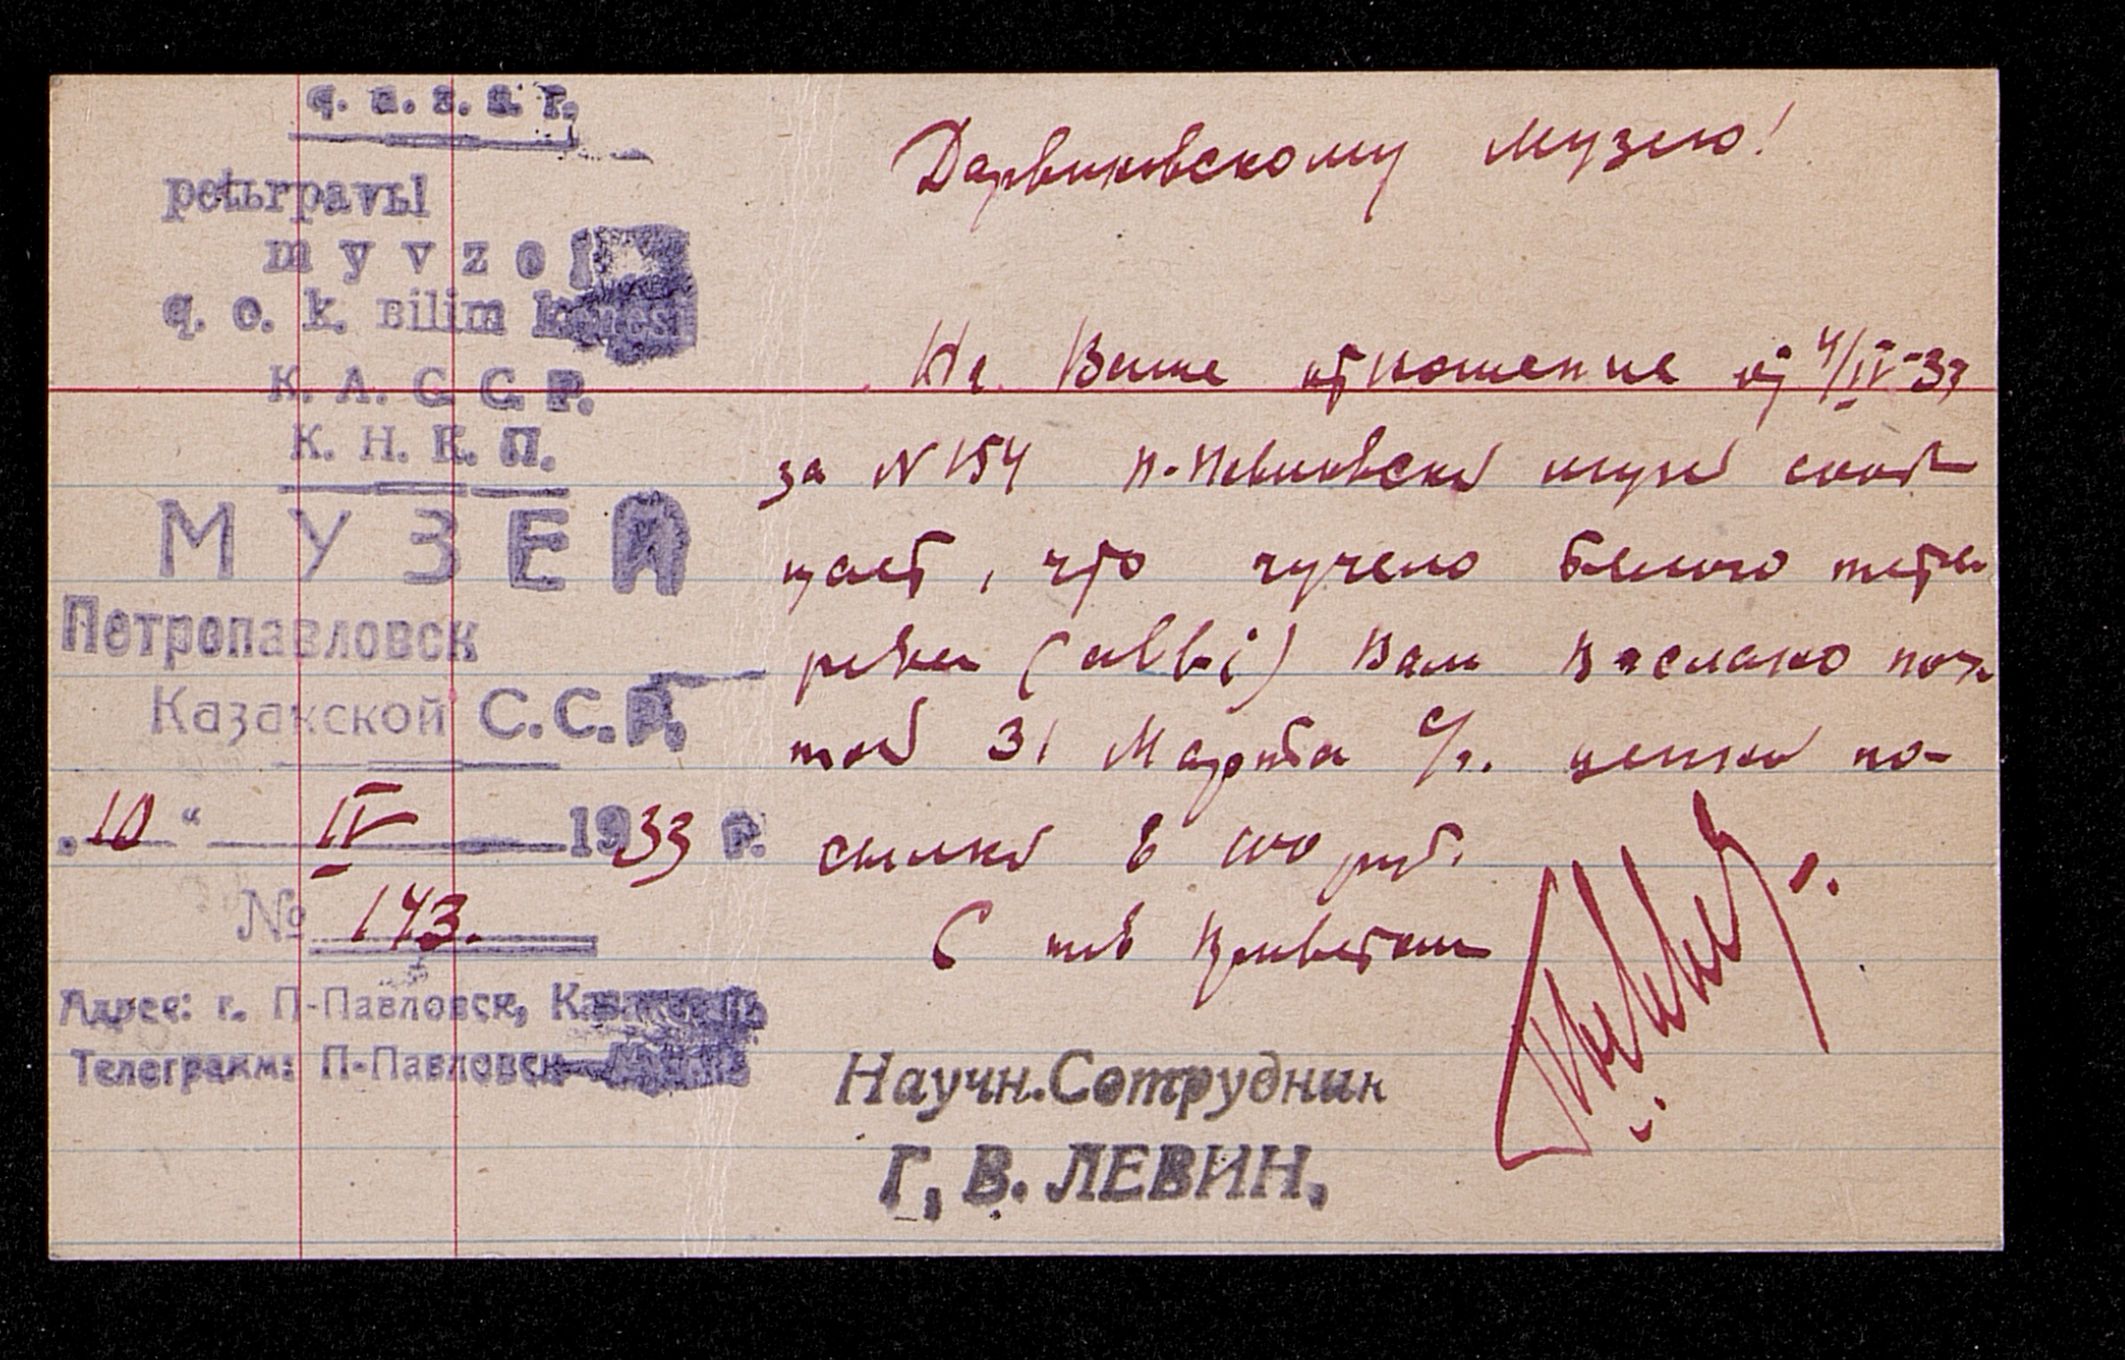 q. a. z. a. r.
petьrpavьl
myvzei
q. o. k. bilim
К. А. С. С. Р.
К. Н. К. П.
МУЗЕЙ
Петропавловск
Казакской С.С.Р.
„10“ IV 1933 г.
№ 143.
Адрес: г. П-Павловск,
Телеграмм: П-Павловск
Дарвиновскому музею!
На Ваше отношение от 4/IV-33
за N 154 П-Павловский музей сооб-
щает, что чучело белого тете-
рева (albi) Вам выслано поч-
той 31 Марта с/г. ценной по-
сылкой в 100 руб.
С тов приветом
Научн. Сотрудник
Г. В. ЛЕВИН.